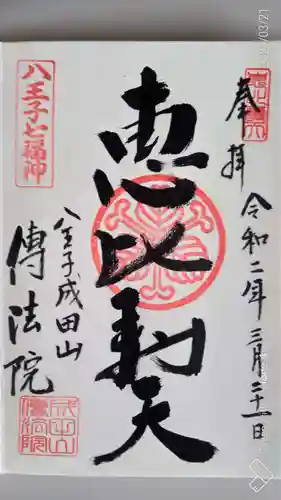 奉拝
令和二年三月二十一日
恵比寿天
八王子七福神
八王子成田山
傳法院
成田山
傳法院